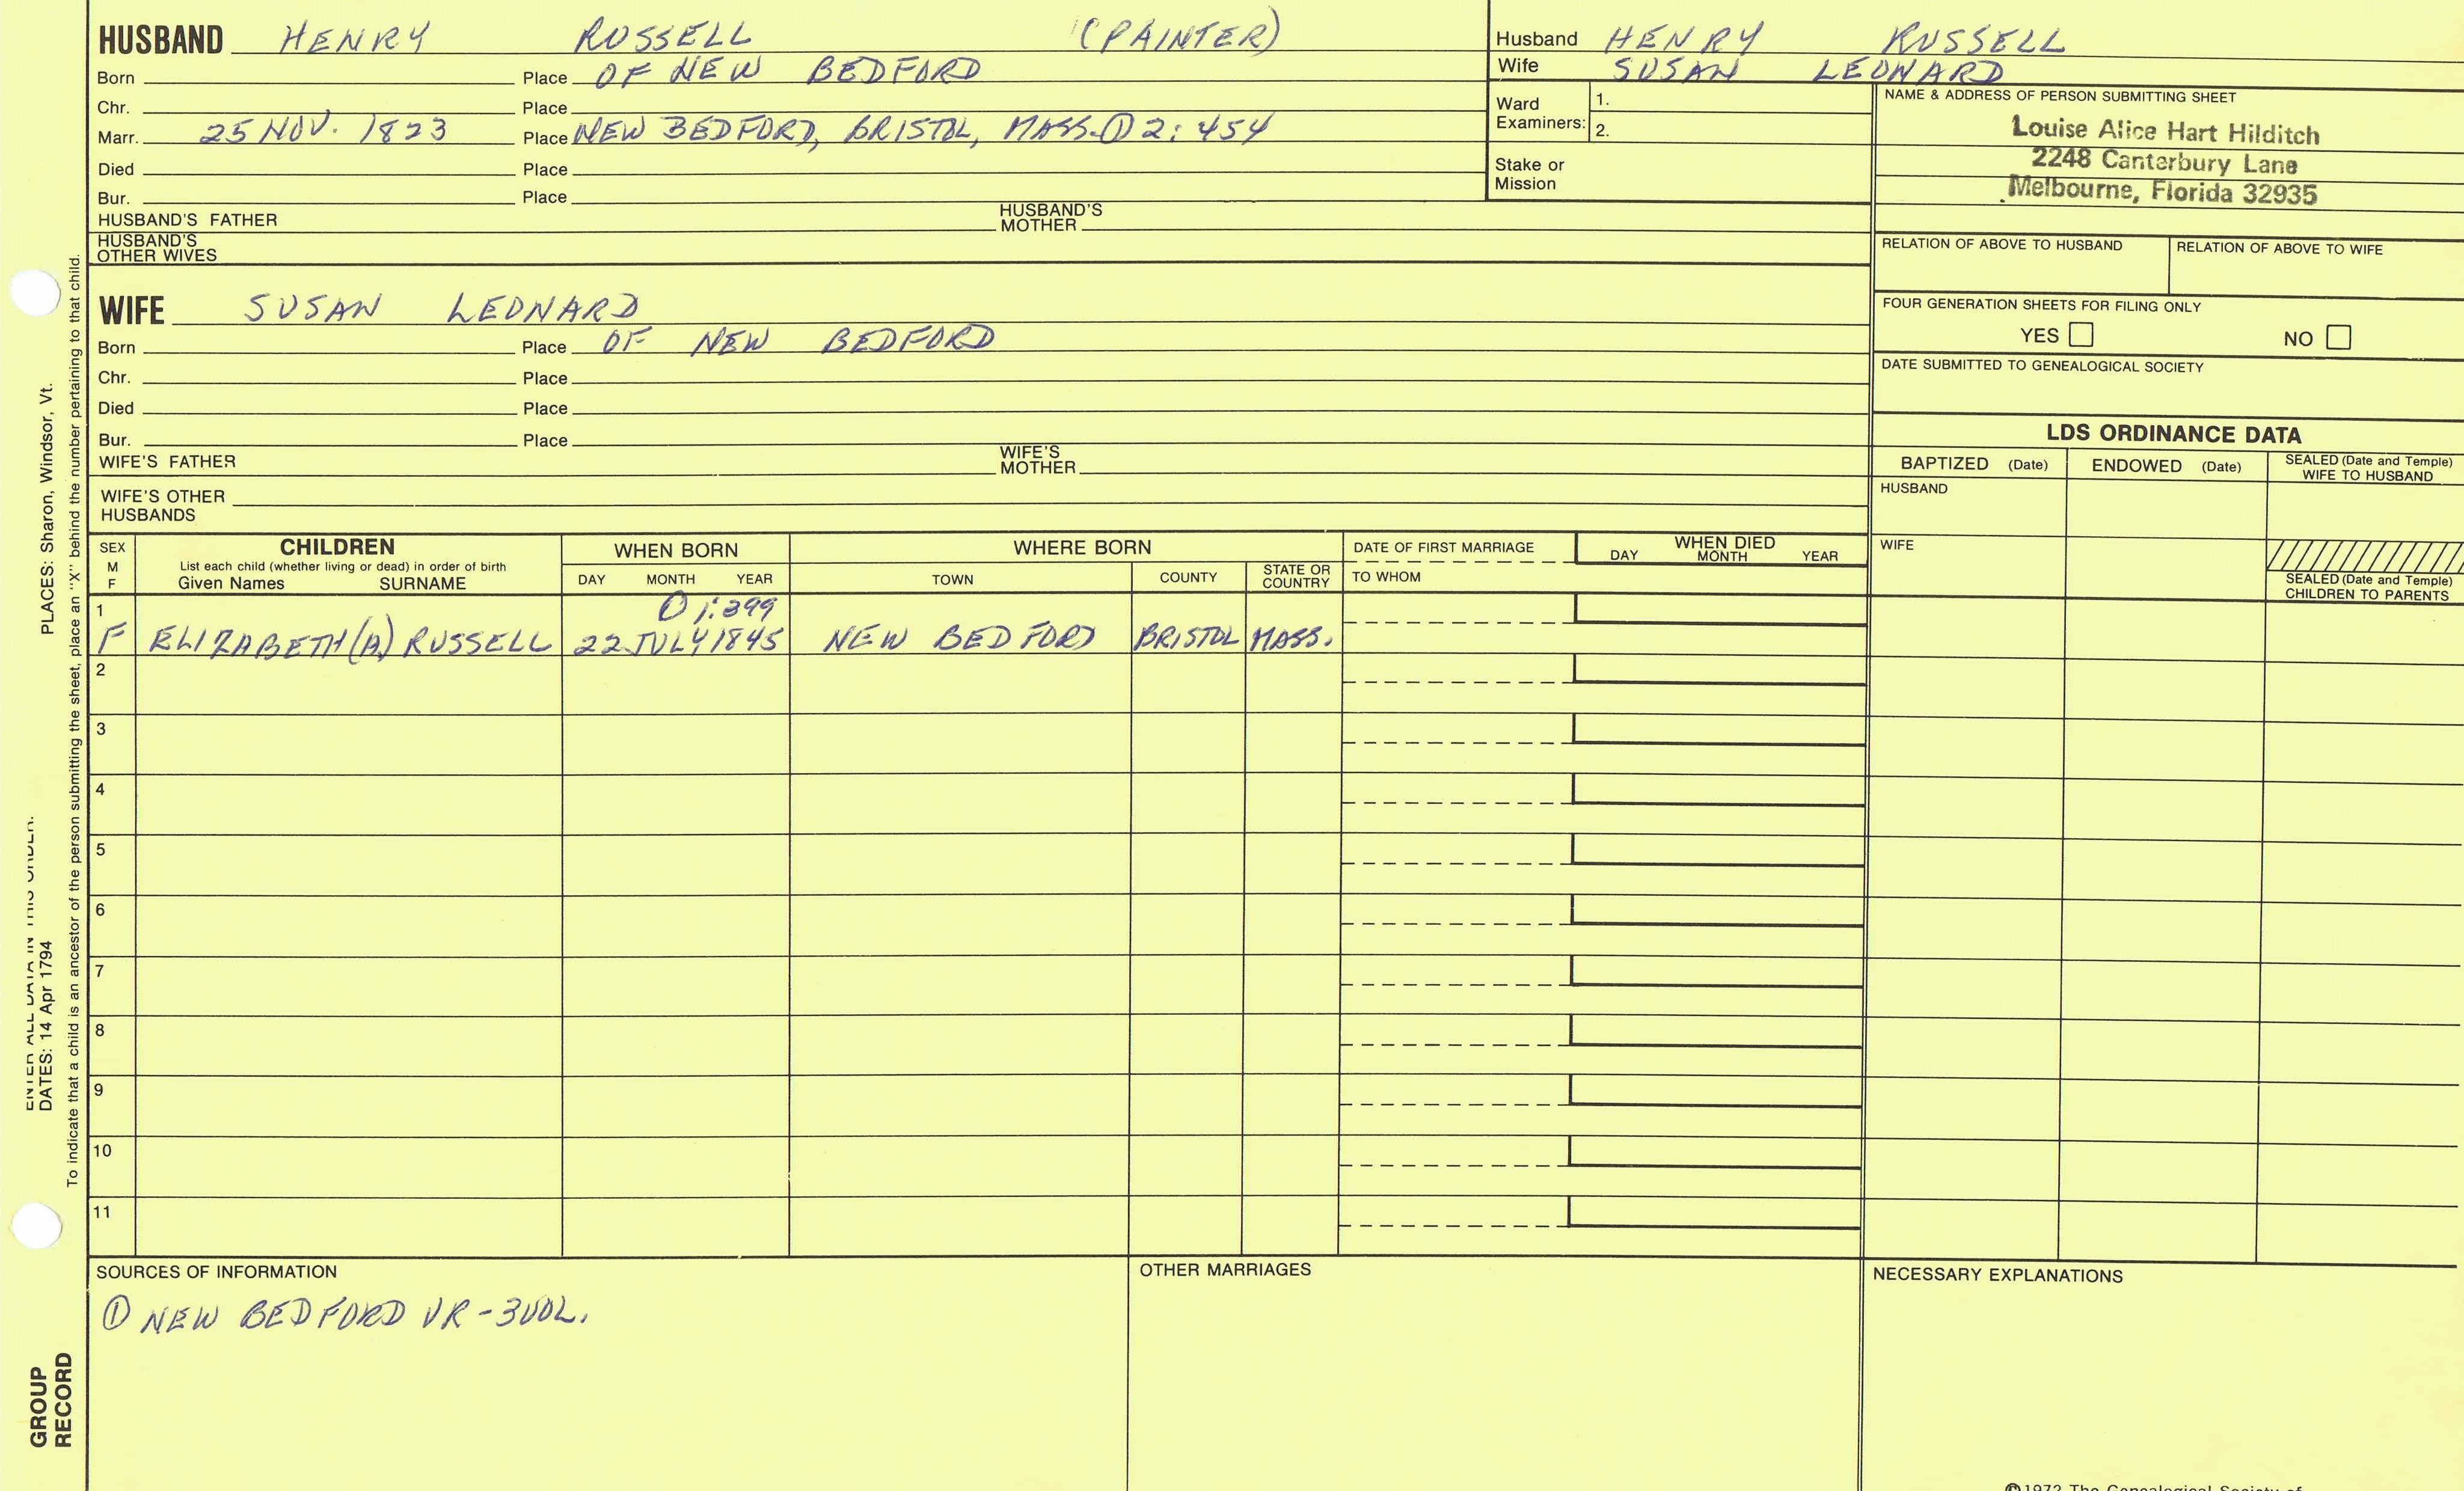 HUSBAND HENRY RUSSELL (PAINTER)
Born Place OF NEW BEDFORD
Chr. Place
Marr. 25 NOV. 1823 Place NEW BEDFORD, BRISTOL, MASS. ① 2:454
Died Place
Bur. Place
HUSBAND'S FATHER HUSBAND'S MOTHER
HUSBAND'S OTHER WIVES
Husband HENRY RUSSELL
Wife SUSAN LEONARD
Ward Examiners: 1.
2.
Stake or Mission
NAME & ADDRESS OF PERSON SUBMITTING SHEET
Louise Alice Hart Hilditch
2248 Canterbury Lane
Melbourne, Florida 32935
RELATION OF ABOVE TO HUSBAND RELATION OF ABOVE TO WIFE
FOUR GENERATION SHEETS FOR FILING ONLY
YES NO
DATE SUBMITTED TO GENEALOGICAL SOCIETY
WIFE SUSAN LEONARD
Born Place OF NEW BEDFORD
Chr. Place
Died Place
Bur. Place
WIFE'S FATHER WIFE'S MOTHER
WIFE'S OTHER HUSBANDS
LDS ORDINANCE DATA
BAPTIZED (Date) ENDOWED (Date) SEALED (Date and Temple) WIFE TO HUSBAND
HUSBAND
WIFE
SEALED (Date and Temple) CHILDREN TO PARENTS
SEX M F
CHILDREN
List each child (whether living or dead) in order of birth
Given Names SURNAME
WHEN BORN
DAY MONTH YEAR
WHERE BORN
TOWN COUNTY STATE OR COUNTRY
DATE OF FIRST MARRIAGE
TO WHOM
WHEN DIED
DAY MONTH YEAR
1 ① 1:399
F ELIZABETH (A) RUSSELL 22 JULY 1845 NEW BEDFORD BRISTOL MASS.
2
3
4
5
6
7
8
9
10
11
SOURCES OF INFORMATION
① NEW BEDFORD VR - 3 VOL.
OTHER MARRIAGES
NECESSARY EXPLANATIONS
©1972 The Genealogical Society of
ENTER ALL DATA IN THIS ORDER:
DATES: 14 Apr 1794
PLACES: Sharon, Windsor, Vt.
To indicate that a child is an ancestor of the person submitting the sheet, place an "X" behind the number pertaining to that child.
GROUP
RECORD